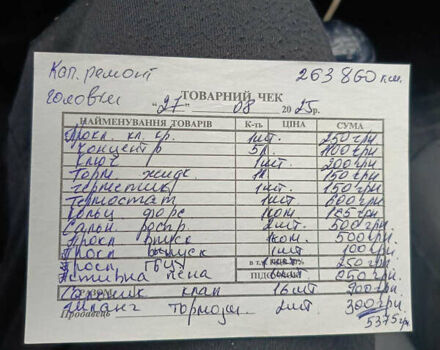 Кап. ремонт 263 860 км.
головки
ТОВАРНИЙ ЧЕК
"27" 08 2025р.
НАЙМЕНУВАННЯ ТОВАРІВ К-ть ЦІНА СУМА
Прокл. кл. кр. 1шт. 250 грн
Концентр 5л.
Ключ 1шт. 200 грн
Торм. жидк. 1л 150 грн
Герметик 1шт. 150 грн
Термостат 1шт. 600 грн
Кольц форс 1ком. 165 грн
Сальн распр. 2шт. 500 грн
Прокл впуск 1ком. 500 грн
Прокл выпуск 1шт 100 грн
ГБЦ 250 грн
пена
клап 16шт 900 грн
Шланг тормозн. 2шт 300 грн.
Продавець 5375 грн